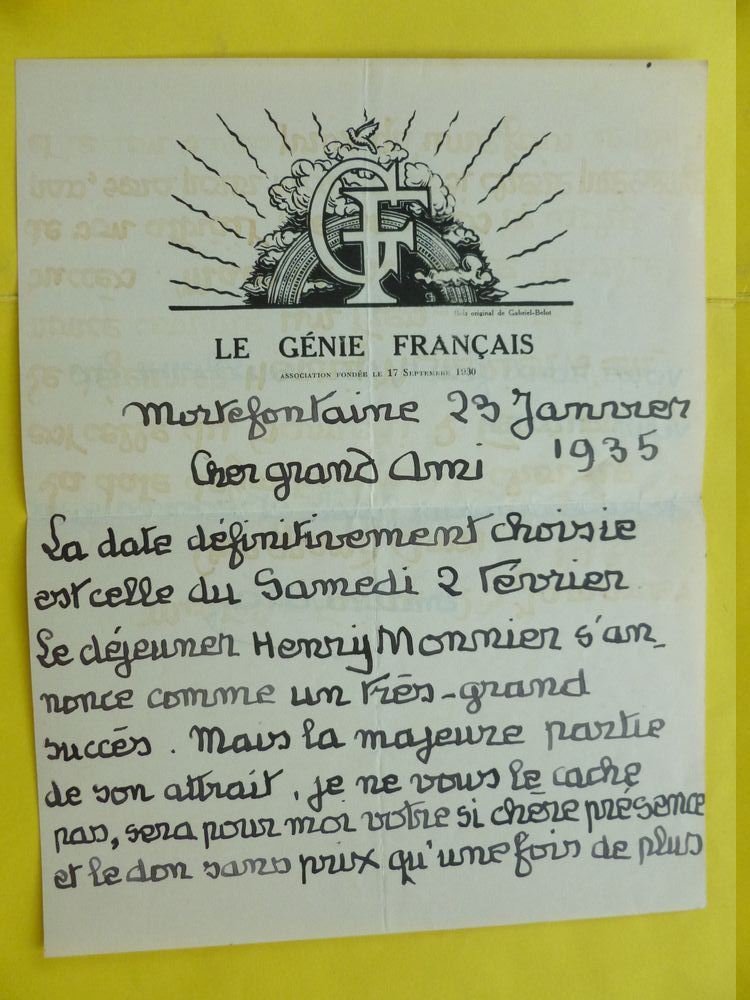 GF
Bois original de Gabriel-Belot
LE GÉNIE FRANÇAIS
ASSOCIATION FONDÉE LE 17 SEPTEMBRE 1930
Mortefontaine 23 Janvier
1935
Cher grand Ami
La date définitivement choisie
est celle du Samedi 2 Février
Le déjeuner Henry Monnier s'an-
nonce comme un très-grand
succès. Mais la majeure partie
de son attrait, je ne vous le cache
pas, sera pour moi votre si chère présence
et le don sans prix qu'une fois de plus